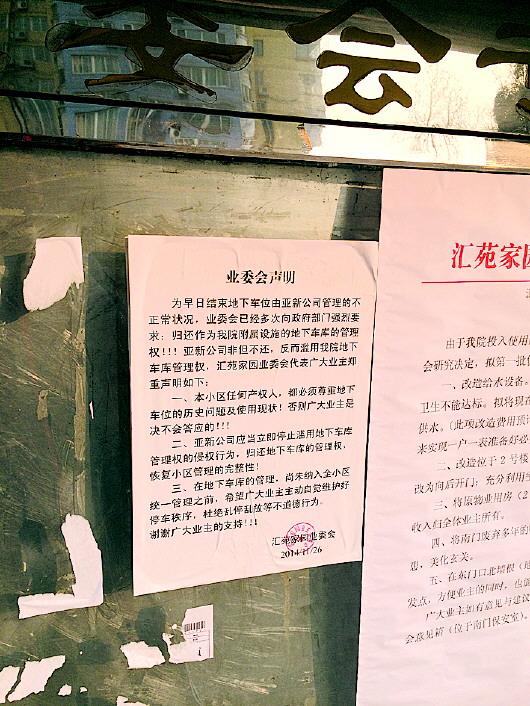 委会
业委会声明
为早日结束地下车位由亚新公司管理的不
正常状况，业委会已经多次向政府部门强烈要
求：归还作为我院附属设施的地下车库的管理
权!!! 亚新公司非但不还，反而滥用我院地下
车库管理权，汇苑家园业委会代表广大业主郑
重声明如下：
一、本小区任何产权人，都必须尊重地下
车位的历史问题及使用现状！否则广大业主是
决不会答应的!!!
二、亚新公司应当立即停止滥用地下车库
管理权的侵权行为，归还地下车库的管理权，
恢复小区管理的完整性！
三、在地下车库的管理，尚未纳入全小区
统一管理之前，希望广大业主主动自觉维护好
停车秩序，杜绝乱停乱放等不道德行为。
谢谢广大业主的支持!!!
汇苑家园业委会
2014/11/26
汇苑家园
由于我院投入使用
会研究决定，拟第一批
一、改造给水设备。
卫生不能达标。拟将现在
供水。（此项改造费用预计
来实现一户一表准备好必
二、改造位于2号楼
改为向后开门；充分利用
三、将原物业用房（2
收入归全体业主所有。
四、将南门废弃多年的
，美化玄关。
五、在东门口北墙根（
发点，方便业主的同时，也
广大业主如有意见与建议
会意见箱（位于南门保安室）。